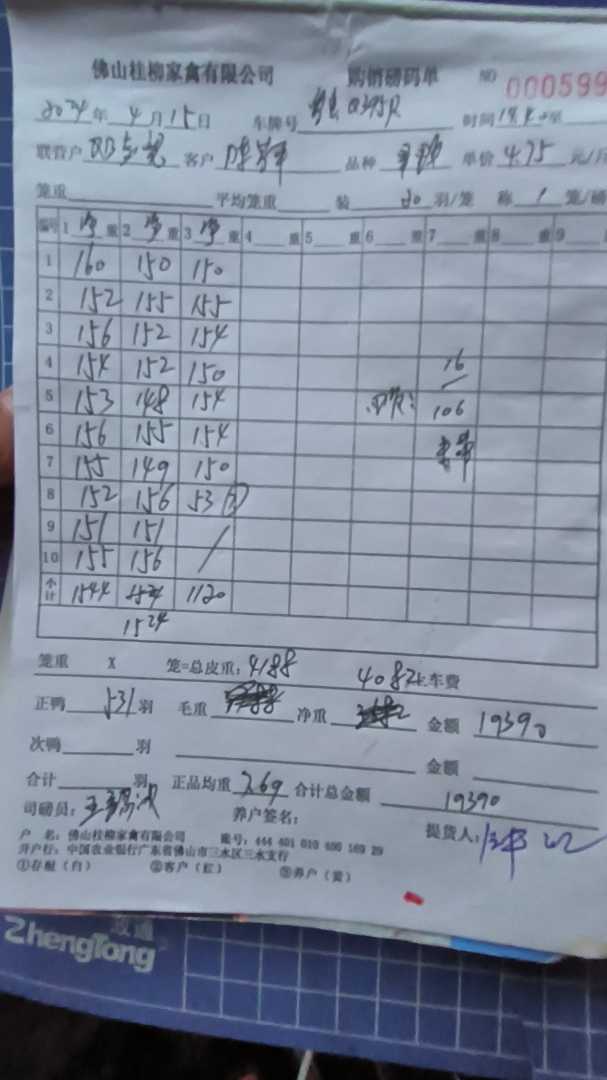 佛山桂柳家禽有限公司 购销磅码单 NO 000599
2024年 4月15日 车牌号 0395R 时间
联营户 客户 品种 单价 4.75 元/斤
笼重 平均笼重 装 20 羽/笼 称 1 笼/磅
编号 1 净重 2 净重 3 净重 4 重 5 重 6 重 7 重 8 重 9
1 160 150 150
2 152 155 155
3 156 152 154
4 154 152 150 16
5 153 148 154 106
6 156 155 154
7 155 149 150
8 152 156 53
9 151 151 /
10 155 156
小计 1544 1120
1524
笼重 X 笼=总皮重: 4188 4082 上车费
正鸭 531 羽 毛重 净重 金额 19390
次鸭 羽 金额
合计 羽 正品均重 7.69 合计总金额 19390
司磅员: 养户签名: 提货人:
户 名: 佛山桂柳家禽有限公司 账号: 444 401 010 400 169 29
开户行: 中国农业银行广东省佛山市三水区三水支行
①存根(白) ②客户(红) ③养户(黄)
ZhengTong 政通